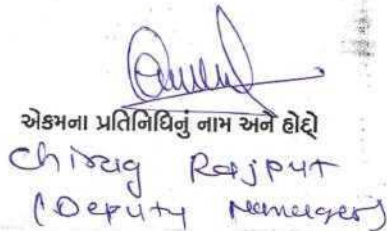 એકમના પ્રતિનિધિનું નામ અને હોદ્દો
Chirag Rajput
(Deputy Manager)